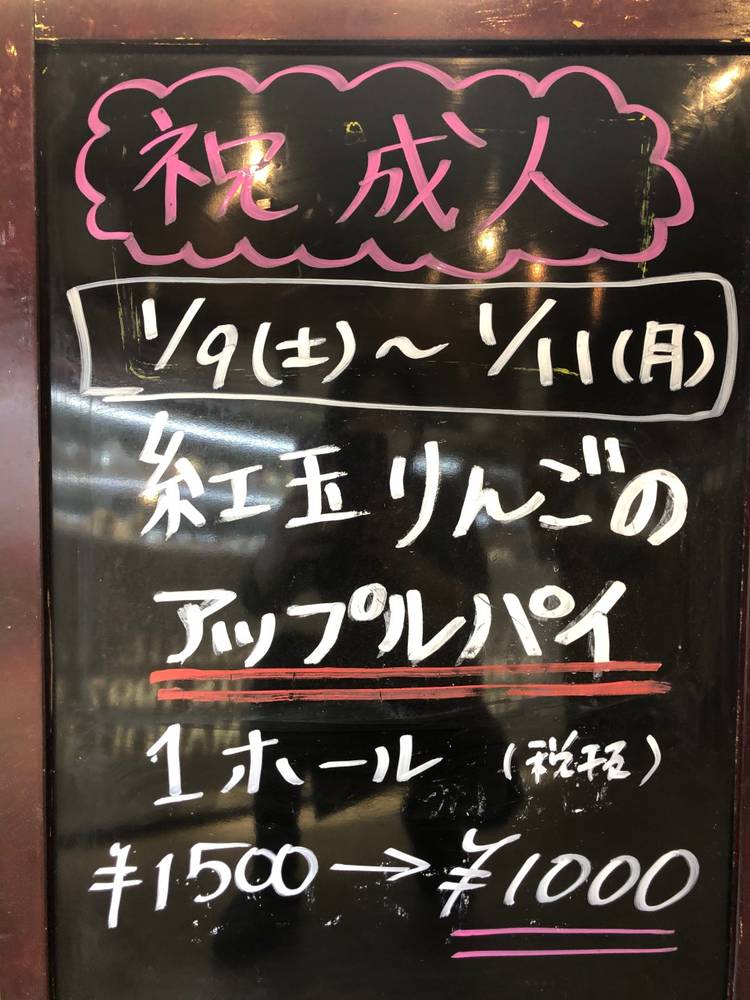 祝 成人
1/9(土)～1/11(月)
紅玉りんごの
アップルパイ
1ホール (税抜)
¥1500→¥1000